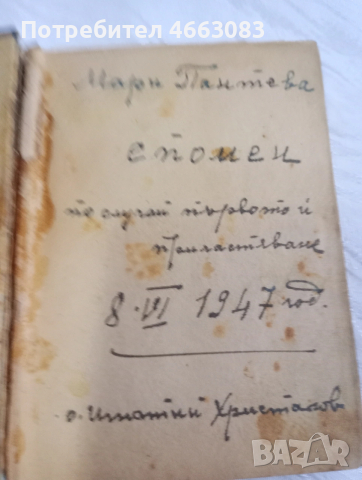 Потребител 4663083
Мари Пантева
спомен
по случай първото ѝ
причастяване
8·VI 1947 год.
о. Игнатий Христаков
bazar